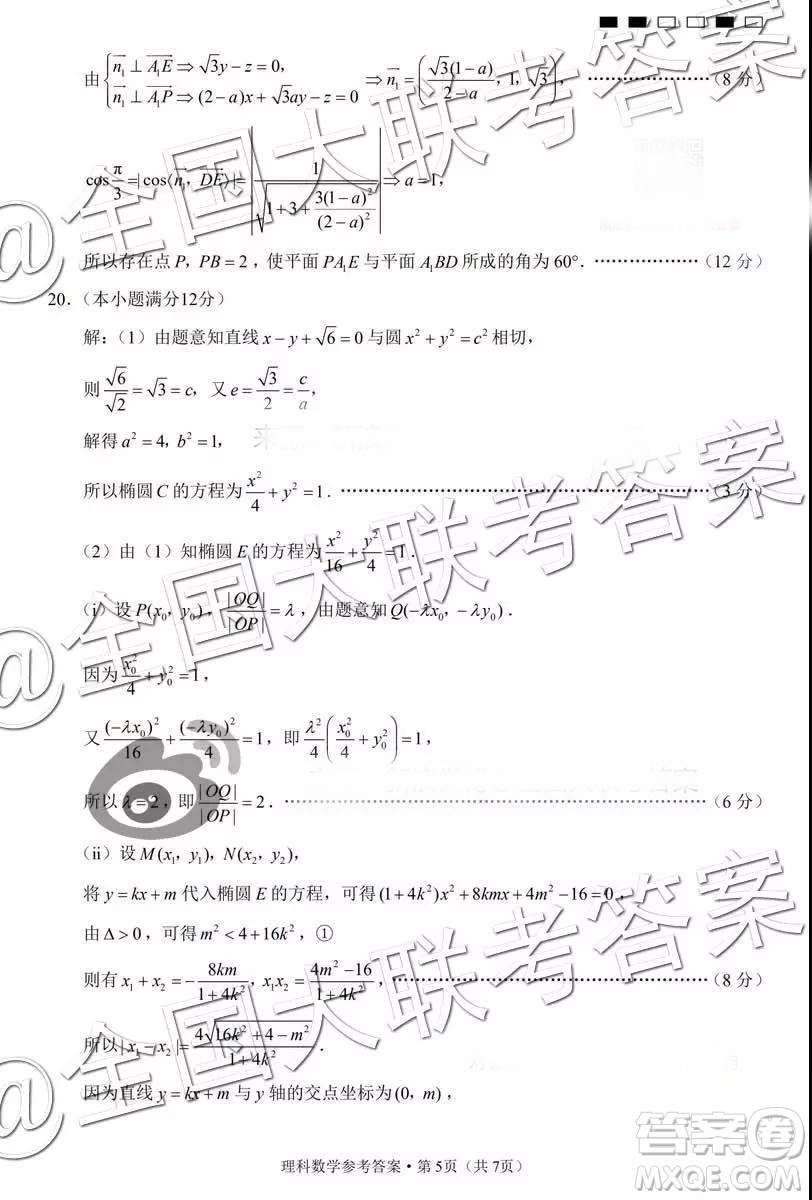 由{n₁⊥A₁E⇒√3y−z=0, n₁⊥A₁P⇒(2−a)x+√3ay−z=0 ⇒n₁=(√3(1−a)/(2−a), 1, √3), ……………………(8 分)
cos π/3=|cos⟨n₁, DE⟩|=|1/√(1+3+3(1−a)²/(2−a)²)|⇒a=1,
所以存在点P, PB=2, 使平面PA₁E与平面A₁BD所成的角为60°. ………………(12 分)
20. (本小题满分12分)
解:(1) 由题意知直线x−y+√6=0与圆x²+y²=c²相切,
则√6/√2=√3=c, 又e=√3/2=c/a,
解得a²=4, b²=1,
所以椭圆C的方程为x²/4+y²=1. ……………………(3 分)
(2) 由(1)知椭圆E的方程为x²/16+y²/4=1.
(i) 设P(x₀, y₀), |OQ|/|OP|=λ, 由题意知Q(−λx₀, −λy₀).
因为x₀²/4+y₀²=1,
又(−λx₀)²/16+(−λy₀)²/4=1, 即λ²/4(x₀²/4+y₀²)=1,
所以λ=2, 即|OQ|/|OP|=2. ……………………(6 分)
(ii) 设M(x₁, y₁), N(x₂, y₂),
将y=kx+m代入椭圆E的方程, 可得(1+4k²)x²+8kmx+4m²−16=0,
由Δ>0, 可得m²<4+16k², ①
则有x₁+x₂=−8km/(1+4k²), x₁x₂=(4m²−16)/(1+4k²), ……………………(8 分)
所以|x₁−x₂|=4√(16k²+4−m²)/(1+4k²).
因为直线y=kx+m与y轴的交点坐标为(0, m),
理科数学参考答案·第5页(共7页)
@全国大联考答案
@全国大联考答案
@全国大联考答案
答案卷
MXQE.COM